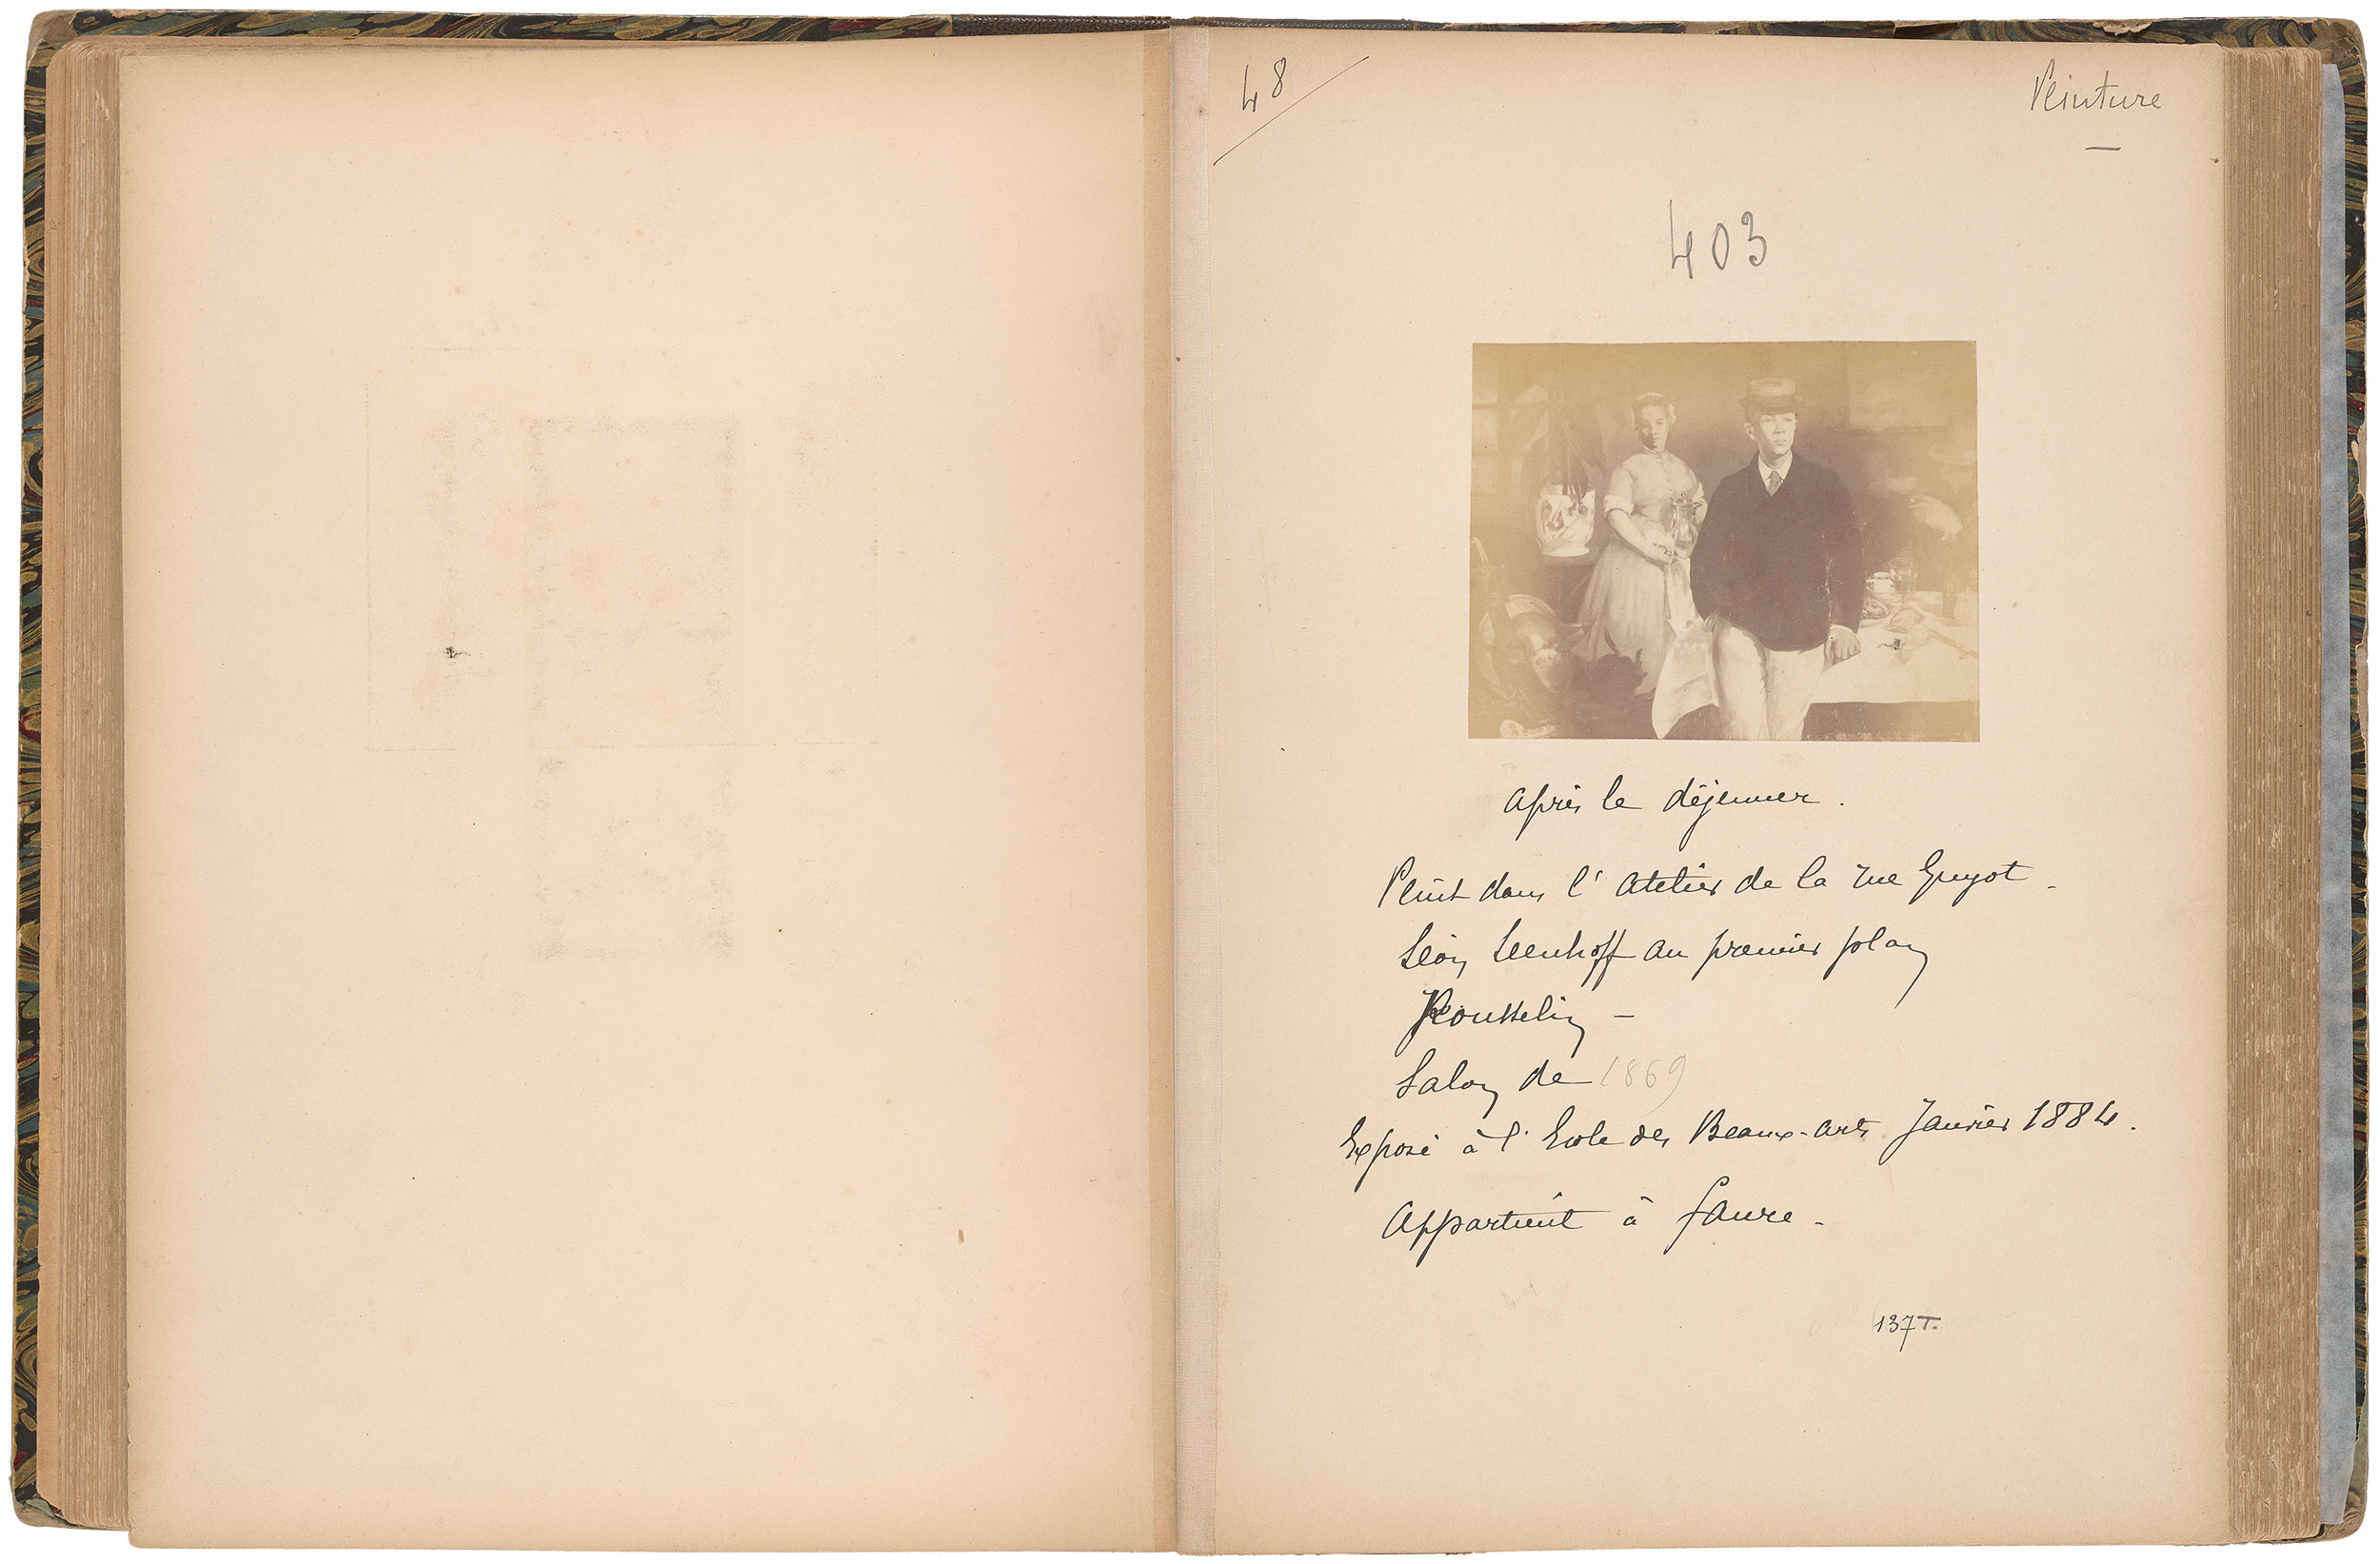 48
Peinture
403
Après le déjeuner.
Peint dans l'Atelier de la rue Guyot.
Léon Leenhoff au premier plan
Rousselin -
Salon de 1869
Exposé à l'Ecole des Beaux-Arts Janvier 1884.
Appartient à Faure.
137 T.